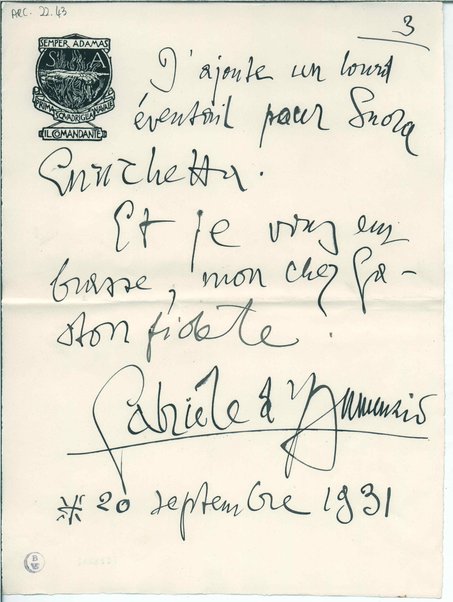 ARC. 22.43
3
SEMPER ADAMAS
S A
PRIMA SQVADRIGLIA NAVALE
IL COMANDANTE
J'ajoute un lourd
éventail pour Suora
Enrichetta.
Et je vous em
brasse, mon cher Ga-
ston fidele.
Gabriele d'Annunzio
20 septembre 1931